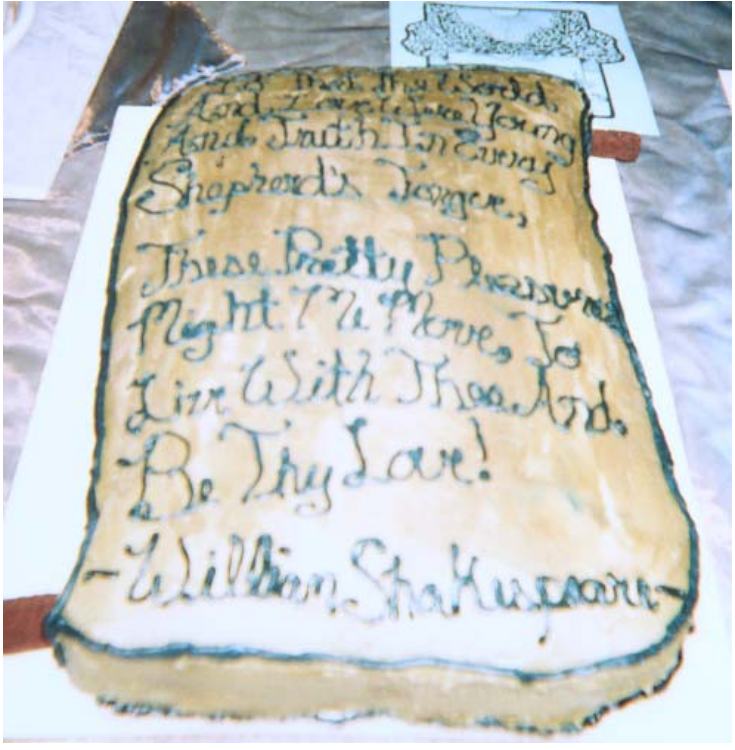 If That The World
And Love Were Young
And Truth In Every
Shepherd's Tongue,
These Pretty Pleasures
Might Me Move, To
Live With Thee And
Be Thy Love!
-William Shakespeare-